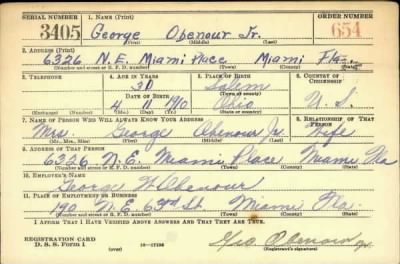 SERIAL NUMBER 1. NAME (Print) ORDER NUMBER
3405 George Obenour Jr. 654
(First) (Middle) (Last)
2. ADDRESS (Print)
6326 N.E. Miami Place Miami Fla.
(Number and street or R. F. D. number) (Town) (County) (State)
3. TELEPHONE 4. AGE IN YEARS 5. PLACE OF BIRTH 6. COUNTRY OF CITIZENSHIP
30 Salem
DATE OF BIRTH (Town or county)
4 11 1910 Ohio U.S.
(Exchange) (Number) (Mo.) (Day) (Yr.) (State or country)
7. NAME OF PERSON WHO WILL ALWAYS KNOW YOUR ADDRESS 8. RELATIONSHIP OF THAT PERSON
Mrs. George Obenour Jr. Wife
(Mr., Mrs., Miss) (First) (Middle) (Last)
9. ADDRESS OF THAT PERSON
6326 N.E. Miami Place Miami Fla
(Number and street or R. F. D. number) (Town) (County) (State)
10. EMPLOYER'S NAME
George W Obenour
11. PLACE OF EMPLOYMENT OR BUSINESS
190 N.E. 63rd St. Miami Fla.
(Number and street or R. F. D. number) (Town) (County) (State)
I AFFIRM THAT I HAVE VERIFIED ABOVE ANSWERS AND THAT THEY ARE TRUE.
REGISTRATION CARD
D. S. S. Form 1 (over) 16—17105 Geo Obenour Jr.
(Registrant's signature)